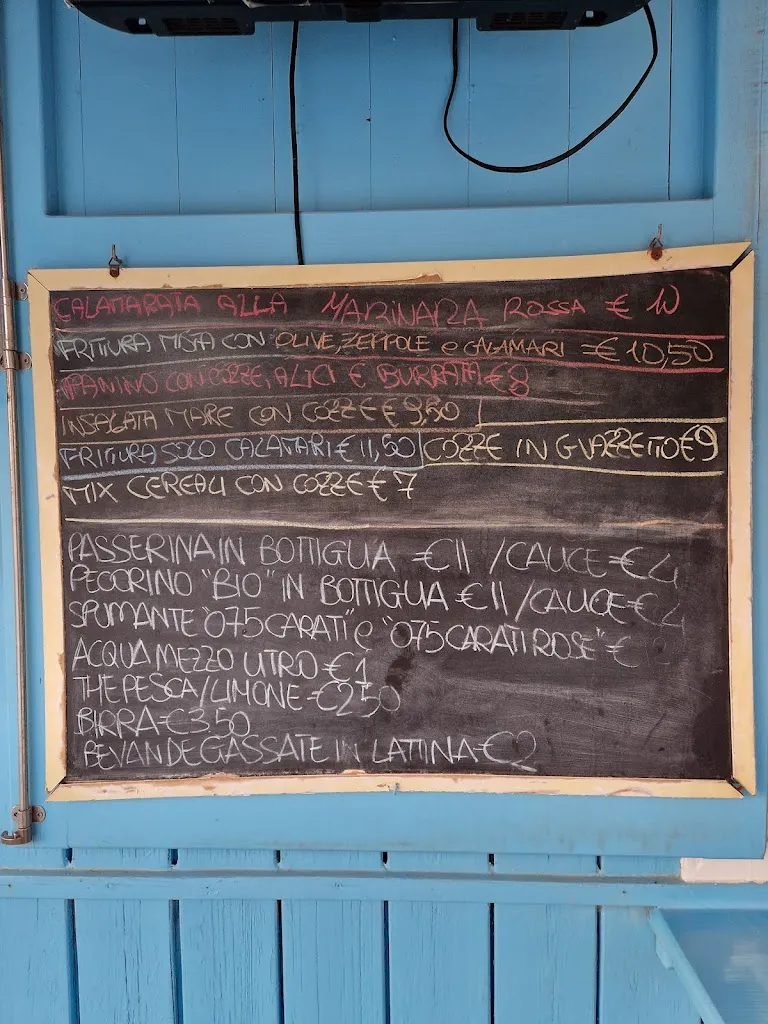 CALAMARATA ALLA MARINARA ROSSA € 10
FRITTURA MISTA CON OLIVE, ZEPPOLE e CALAMARI = € 10,50
PANINO CON COZZE, ALICI E BURRATA € 8
INSALATA MARE CON COZZE € 9,50
FRITTURA SOLO CALAMARI € 11,50 COZZE IN GUAZZETTO € 9
MIX CEREALI CON COZZE € 7
PASSERINA IN BOTTIGLIA € 11 / CALICE = € 4
PECORINO "BIO" IN BOTTIGLIA € 11 / CALICE = € 4
SPUMANTE "075 CARATI" e "075 CARATI ROSÈ" = € 12
ACQUA MEZZO LITRO = € 1
THE PESCA / LIMONE = € 2,50
BIRRA = € 3,50
BEVANDE GASSATE IN LATTINA = € 2